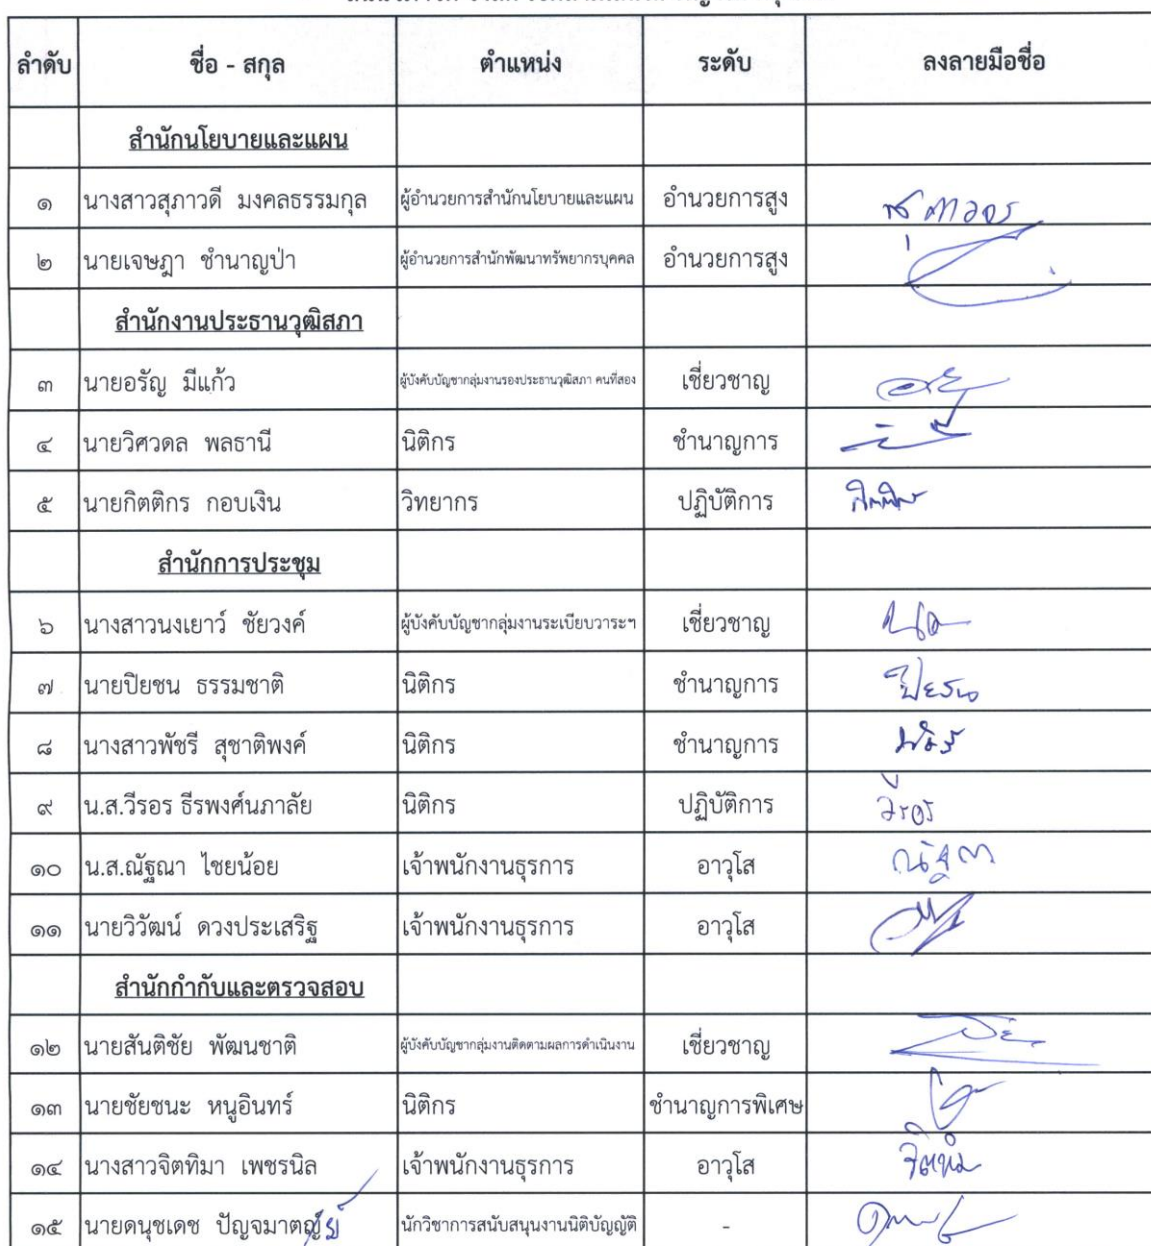 ลำดับ ชื่อ - สกุล ตำแหน่ง ระดับ ลงลายมือชื่อ
สำนักนโยบายและแผน
๑ นางสาวสุภาวดี มงคลธรรมกุล ผู้อำนวยการสำนักนโยบายและแผน อำนวยการสูง
๒ นายเจษฎา ชำนาญป่า ผู้อำนวยการสำนักพัฒนาทรัพยากรบุคคล อำนวยการสูง
สำนักงานประธานวุฒิสภา
๓ นายอรัญ มีแก้ว ผู้บังคับบัญชากลุ่มงานรองประธานวุฒิสภา คนที่สอง เชี่ยวชาญ
๔ นายวิศวดล พลธานี นิติกร ชำนาญการ
๕ นายกิตติกร กอบเงิน วิทยากร ปฏิบัติการ
สำนักการประชุม
๖ นางสาวนงเยาว์ ชัยวงค์ ผู้บังคับบัญชากลุ่มงานระเบียบวาระฯ เชี่ยวชาญ
๗ นายปิยชน ธรรมชาติ นิติกร ชำนาญการ ปิยชน
๘ นางสาวพัชรี สุชาติพงค์ นิติกร ชำนาญการ
๙ น.ส.วีรอร ธีรพงศ์นภาลัย นิติกร ปฏิบัติการ วีรอร
๑๐ น.ส.ณัฐณา ไชยน้อย เจ้าพนักงานธุรการ อาวุโส ณัฐณา
๑๑ นายวิวัฒน์ ดวงประเสริฐ เจ้าพนักงานธุรการ อาวุโส
สำนักกำกับและตรวจสอบ
๑๒ นายสันติชัย พัฒนชาติ ผู้บังคับบัญชากลุ่มงานติดตามผลการดำเนินงาน เชี่ยวชาญ
๑๓ นายชัยชนะ หนูอินทร์ นิติกร ชำนาญการพิเศษ
๑๔ นางสาวจิตทิมา เพชรนิล เจ้าพนักงานธุรการ อาวุโส
๑๕ นายดนุชเดช ปัญจมาตญ์ย์ นักวิชาการสนับสนุนงานนิติบัญญัติ -